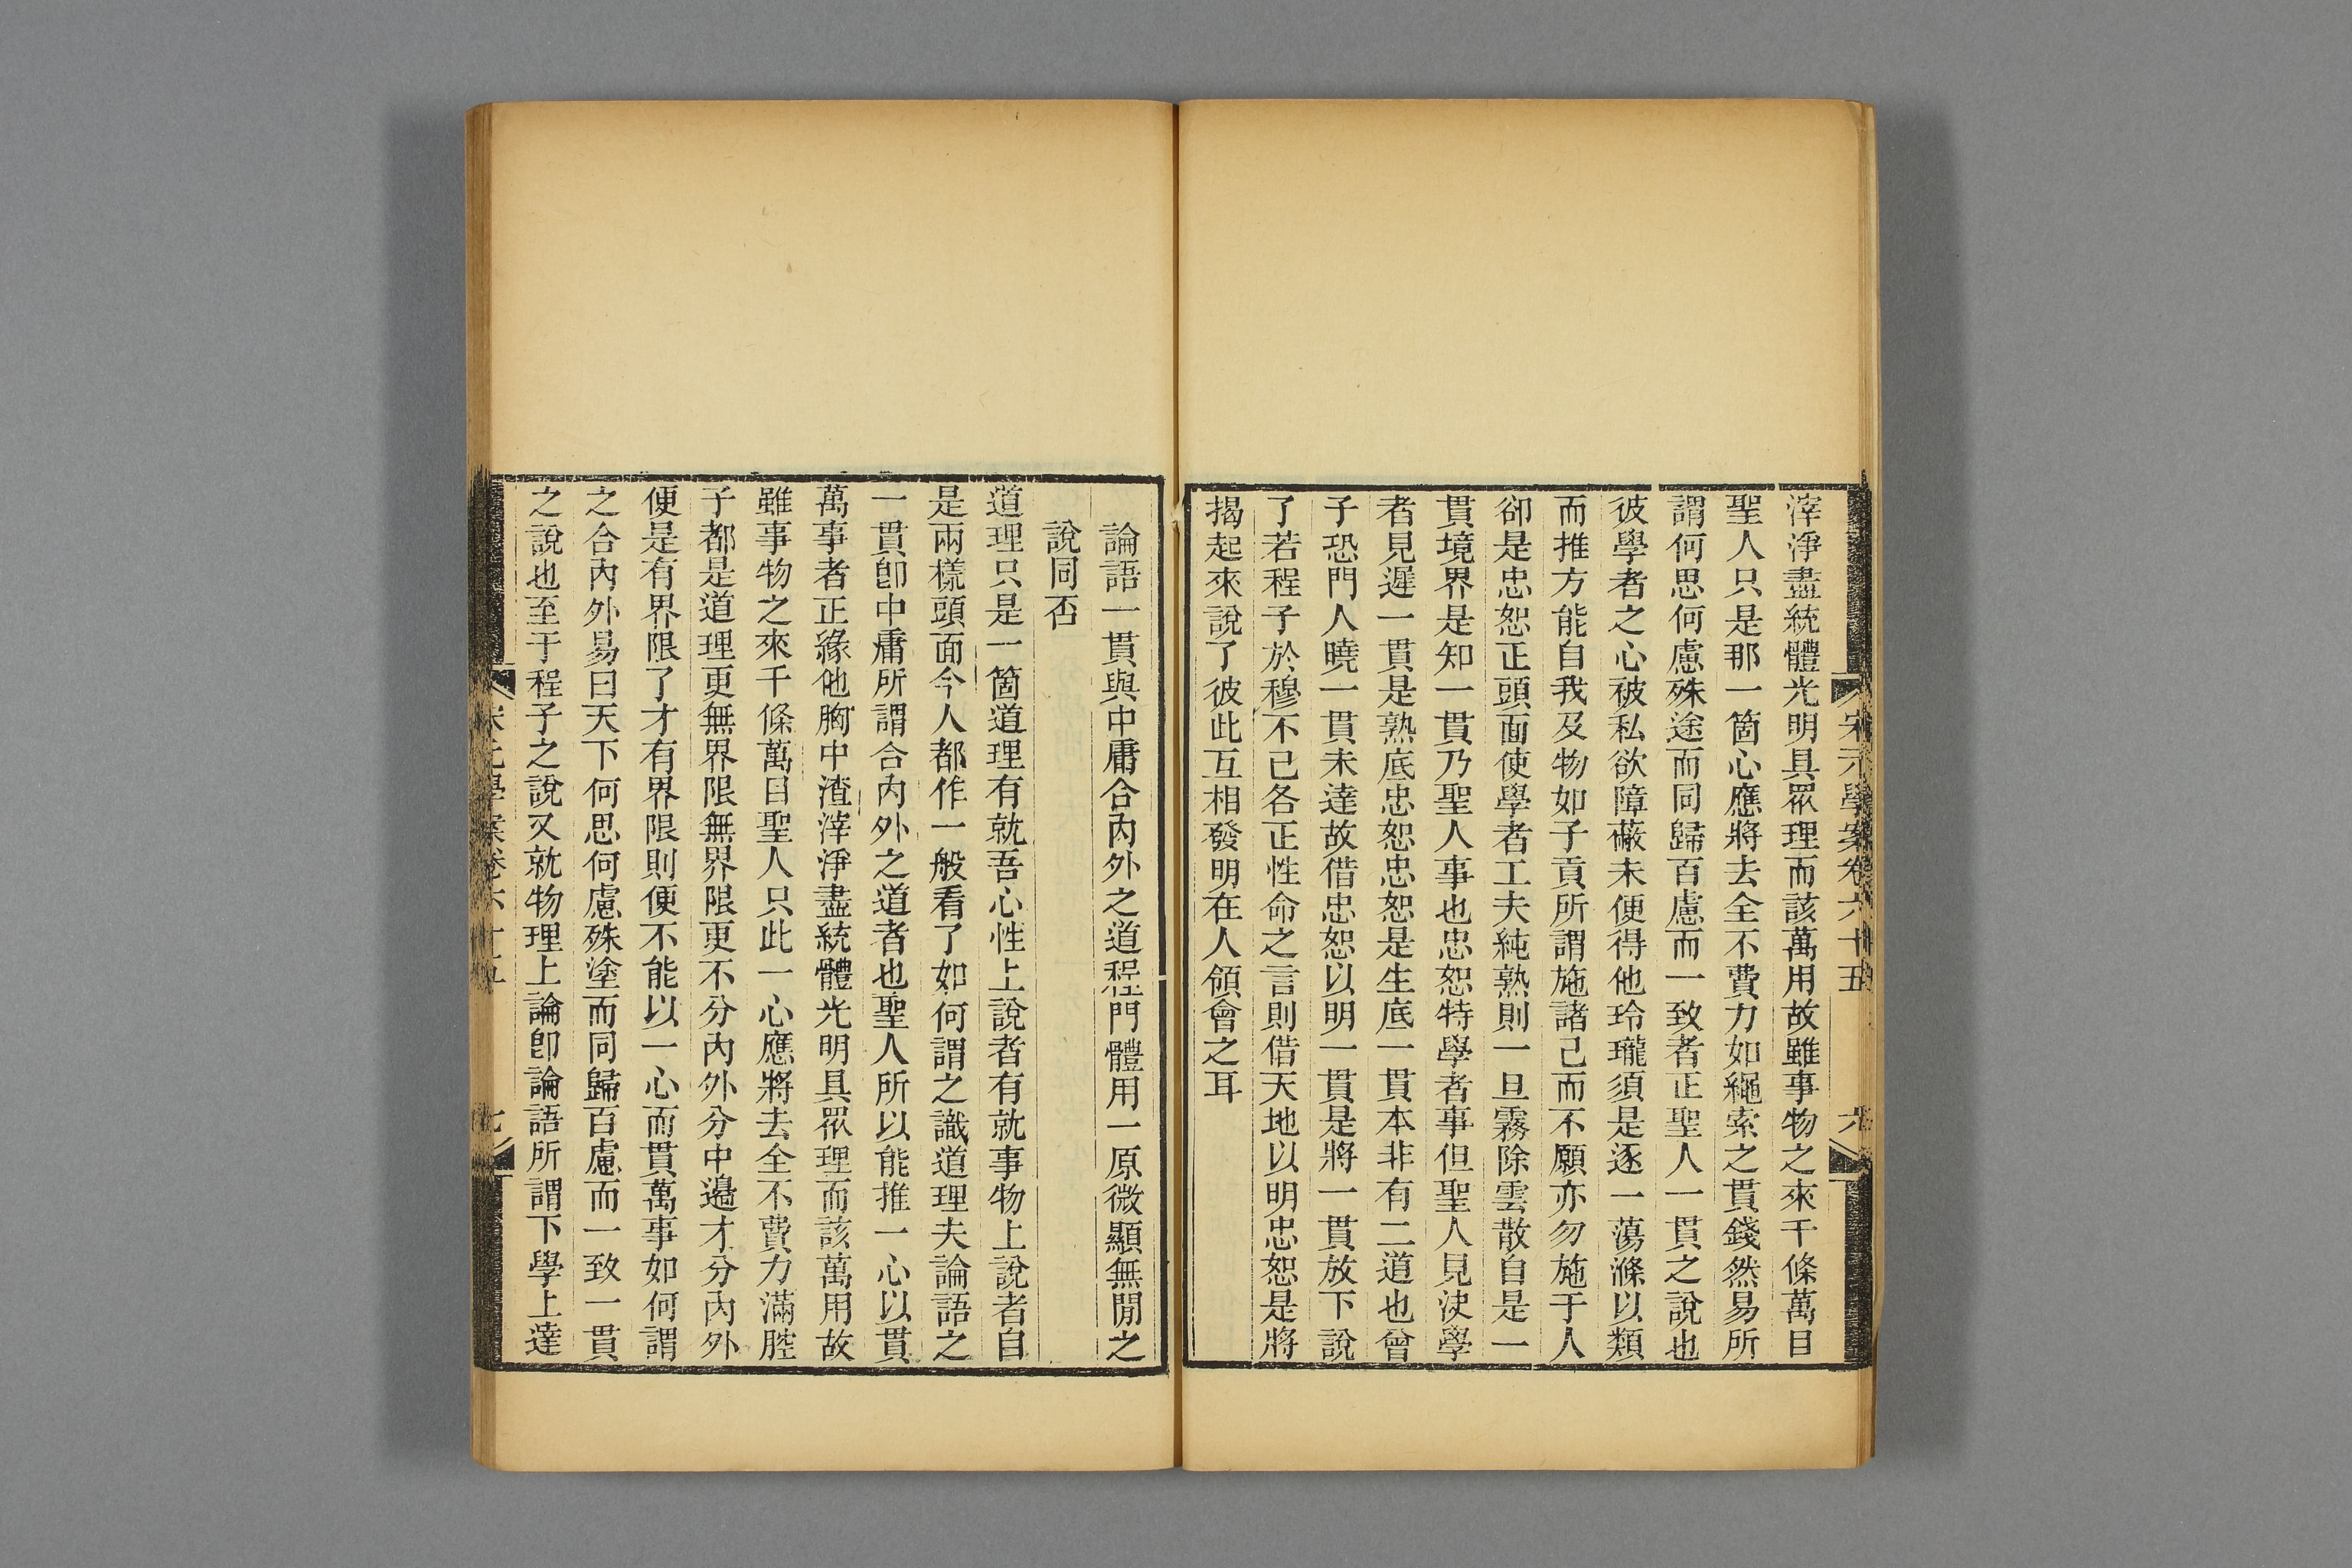 宋元學案卷六十五
六
滓淨盡統體光明具眾理而該萬用故雖事物之來千條萬目
聖人只是那一箇心應將去全不費力如繩索之貫錢然易所
謂何思何慮殊途而同歸百慮而一致者正聖人一貫之說也
彼學者之心被私欲障蔽未便得他玲瓏須是逐一蕩滌以類
而推方能自我及物如子貢所謂施諸己而不願亦勿施于人
卻是忠恕正頭面使學者工夫純熟則一旦霧除雲散自是一
貫境界是知一貫乃聖人事也忠恕特學者事但聖人見決學
者見遲一貫是熟底忠恕忠恕是生底一貫本非有二道也曾
子恐門人曉一貫未達故借忠恕以明一貫是將一貫放下說
了若程子於穆不已各正性命之言則借天地以明忠恕是將
揭起來說了彼此互相發明在人領會之耳
論語一貫與中庸合內外之道程門體用一原微顯無閒之
說同否
道理只是一箇道理有就吾心性上說者有就事物上說者自
是兩樣頭面今人都作一般看了如何謂之識道理夫論語之
一貫卽中庸所謂合內外之道者也聖人所以能推一心以貫
萬事者正緣他胸中渣滓淨盡統體光明具眾理而該萬用故
雖事物之來千條萬目聖人只此一心應將去全不費力滿腔
子都是道理更無界限無界限更不分內外分中邊才分內外
便是有界限了才有界限則便不能以一心而貫萬事如何謂
之合內外易曰天下何思何慮殊塗而同歸百慮而一致一貫
之說也至于程子之說又就物理上論卽論語所謂下學上達
宋元學案卷六十五
七